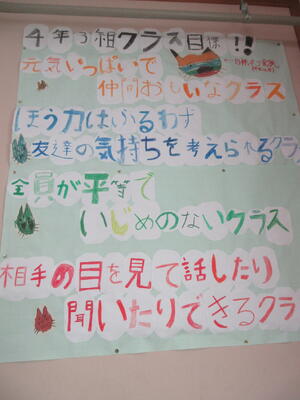 4年3組クラス目標!!
元気いっぱいで
仲間おもいなクラス
ぼう力はふるわず
友達の気持ちを考えられるクラ
全員が平等で
いじめのないクラス
相手の目を見て話したり
聞いたりできるクラ